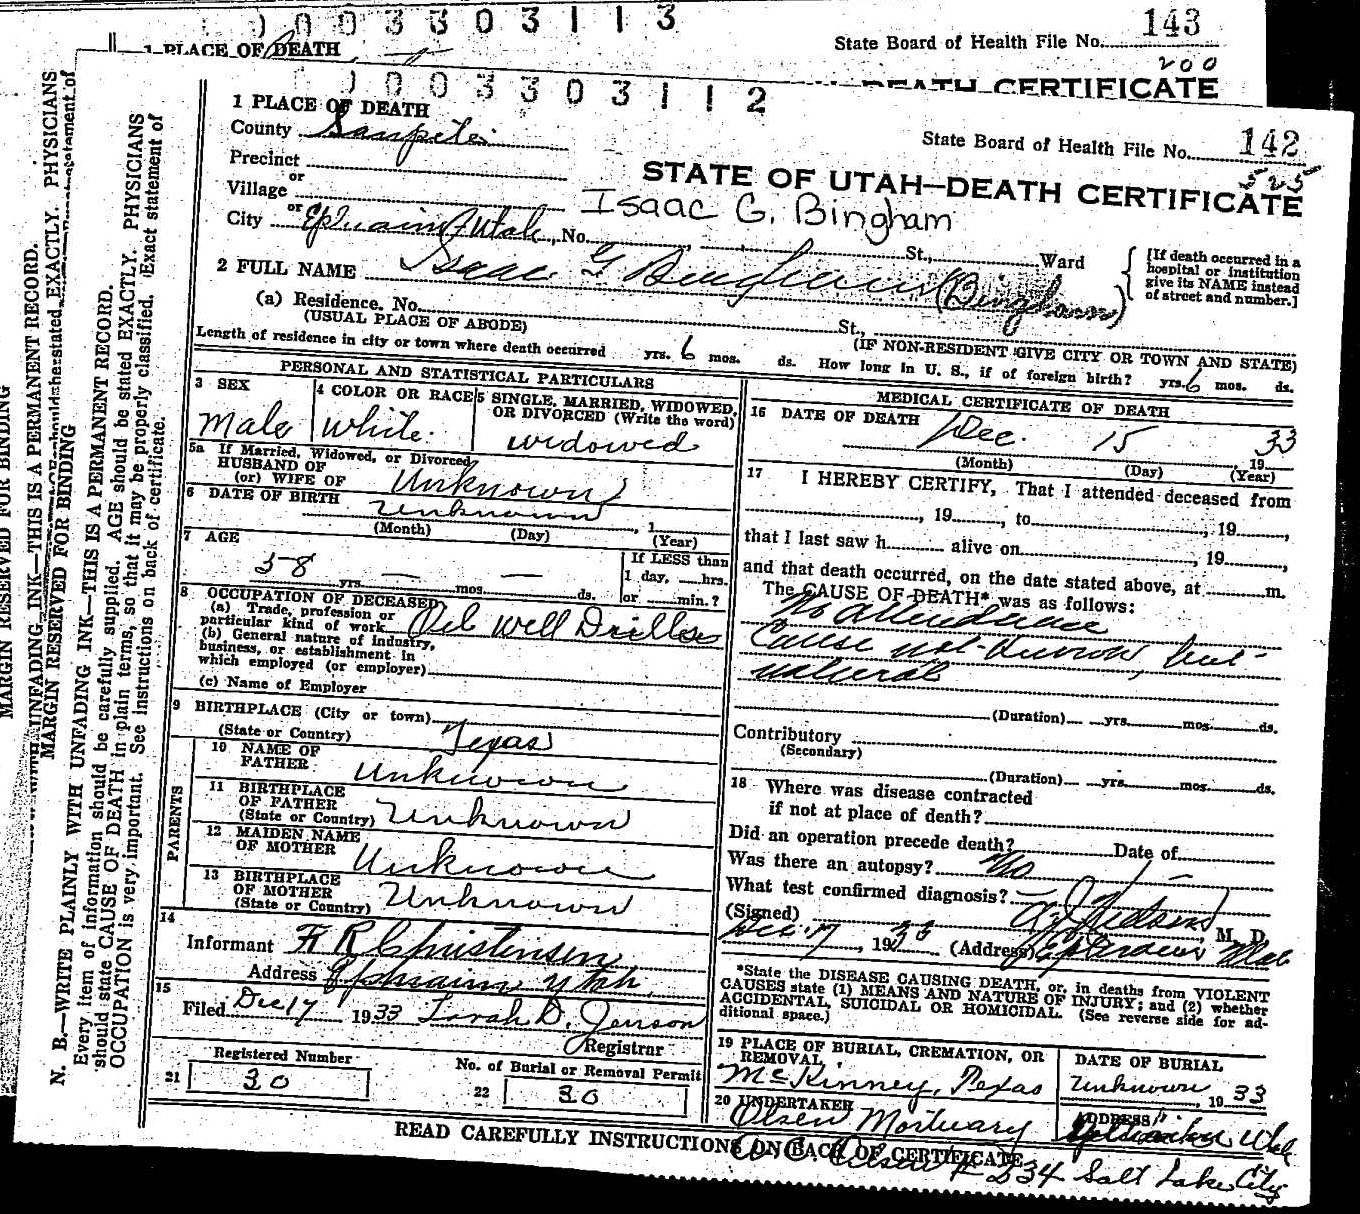 0003303113
143
1 PLACE OF DEATH
State Board of Health File No.
200
DEATH CERTIFICATE
0003303112
1 PLACE OF DEATH
County Sanpete
State Board of Health File No. 142
525
Precinct
or
STATE OF UTAH—DEATH CERTIFICATE
Village
or
Isaac G. Bingham
City Ephraim, Utah, No. St., Ward
[If death occurred in a hospital or institution give its NAME instead of street and number.]
2 FULL NAME Isaac G Bingham (Bingham)
(a) Residence, No. St.,
(USUAL PLACE OF ABODE)
(IF NON-RESIDENT GIVE CITY OR TOWN AND STATE)
Length of residence in city or town where death occurred yrs. 6 mos. ds. How long in U. S., if of foreign birth? yrs. 6 mos. ds.
PERSONAL AND STATISTICAL PARTICULARS
3 SEX
Male
4 COLOR OR RACE
White
5 SINGLE, MARRIED, WIDOWED, OR DIVORCED (Write the word)
widowed
5a If Married, Widowed, or Divorced
HUSBAND OF
(or) WIFE OF Unknown
6 DATE OF BIRTH
unknown, 1
(Month) (Day) (Year)
7 AGE
58 yrs. — mos. — ds.
If LESS than
1 day, hrs.
or min.?
8 OCCUPATION OF DECEASED
(a) Trade, profession or
particular kind of work Oil Well Driller
(b) General nature of industry,
business, or establishment in
which employed (or employer)
(c) Name of Employer
9 BIRTHPLACE (City or town)
(State or Country) Texas
PARENTS
10 NAME OF
FATHER Unknown
11 BIRTHPLACE
OF FATHER
(State or Country) Unknown
12 MAIDEN NAME
OF MOTHER Unknown
13 BIRTHPLACE
OF MOTHER
(State or Country) Unknown
14
Informant F R Christensen
Address Ephraim Utah.
15
Filed Dec 17 1933 Sarah D. Jenson
Registrar
21 Registered Number
30
22 No. of Burial or Removal Permit
30
MEDICAL CERTIFICATE OF DEATH
16 DATE OF DEATH
Dec. 15 1933
(Month) (Day) (Year)
17 I HEREBY CERTIFY, That I attended deceased from
, 19, to, 19,
that I last saw h alive on, 19,
and that death occurred, on the date stated above, at m.
The CAUSE OF DEATH* was as follows:
No attendance
Cause not known, but
natural
(Duration) yrs. mos. ds.
Contributory
(Secondary)
(Duration) yrs. mos. ds.
18 Where was disease contracted
if not at place of death?
Did an operation precede death? Date of
Was there an autopsy? No
What test confirmed diagnosis? —
(Signed) , M. D.
Dec 17, 1933 (Address)
*State the DISEASE CAUSING DEATH, or, in deaths from VIOLENT
CAUSES state (1) MEANS AND NATURE OF INJURY; and (2) whether
ACCIDENTAL, SUICIDAL OR HOMICIDAL. (See reverse side for ad-
ditional space.)
19 PLACE OF BURIAL, CREMATION, OR
REMOVAL
McKinney, Texas
DATE OF BURIAL
Unknown 1933
20 UNDERTAKER
Olsen Mortuary
ADDRESS
Utah
READ CAREFULLY INSTRUCTIONS ON BACK OF CERTIFICATE
# 234 Salt Lake City
MARGIN RESERVED FOR BINDING
WITH UNFADING INK—THIS IS A PERMANENT RECORD.
should be stated EXACTLY. PHYSICIANS
MARGIN RESERVED FOR BINDING
N. B.—WRITE PLAINLY WITH UNFADING INK—THIS IS A PERMANENT RECORD.
Every item of information should be carefully supplied. AGE should be stated EXACTLY. PHYSICIANS
should state CAUSE OF DEATH in plain terms, so that it may be properly classified. Exact statement of
OCCUPATION is very important. See instructions on back of certificate.